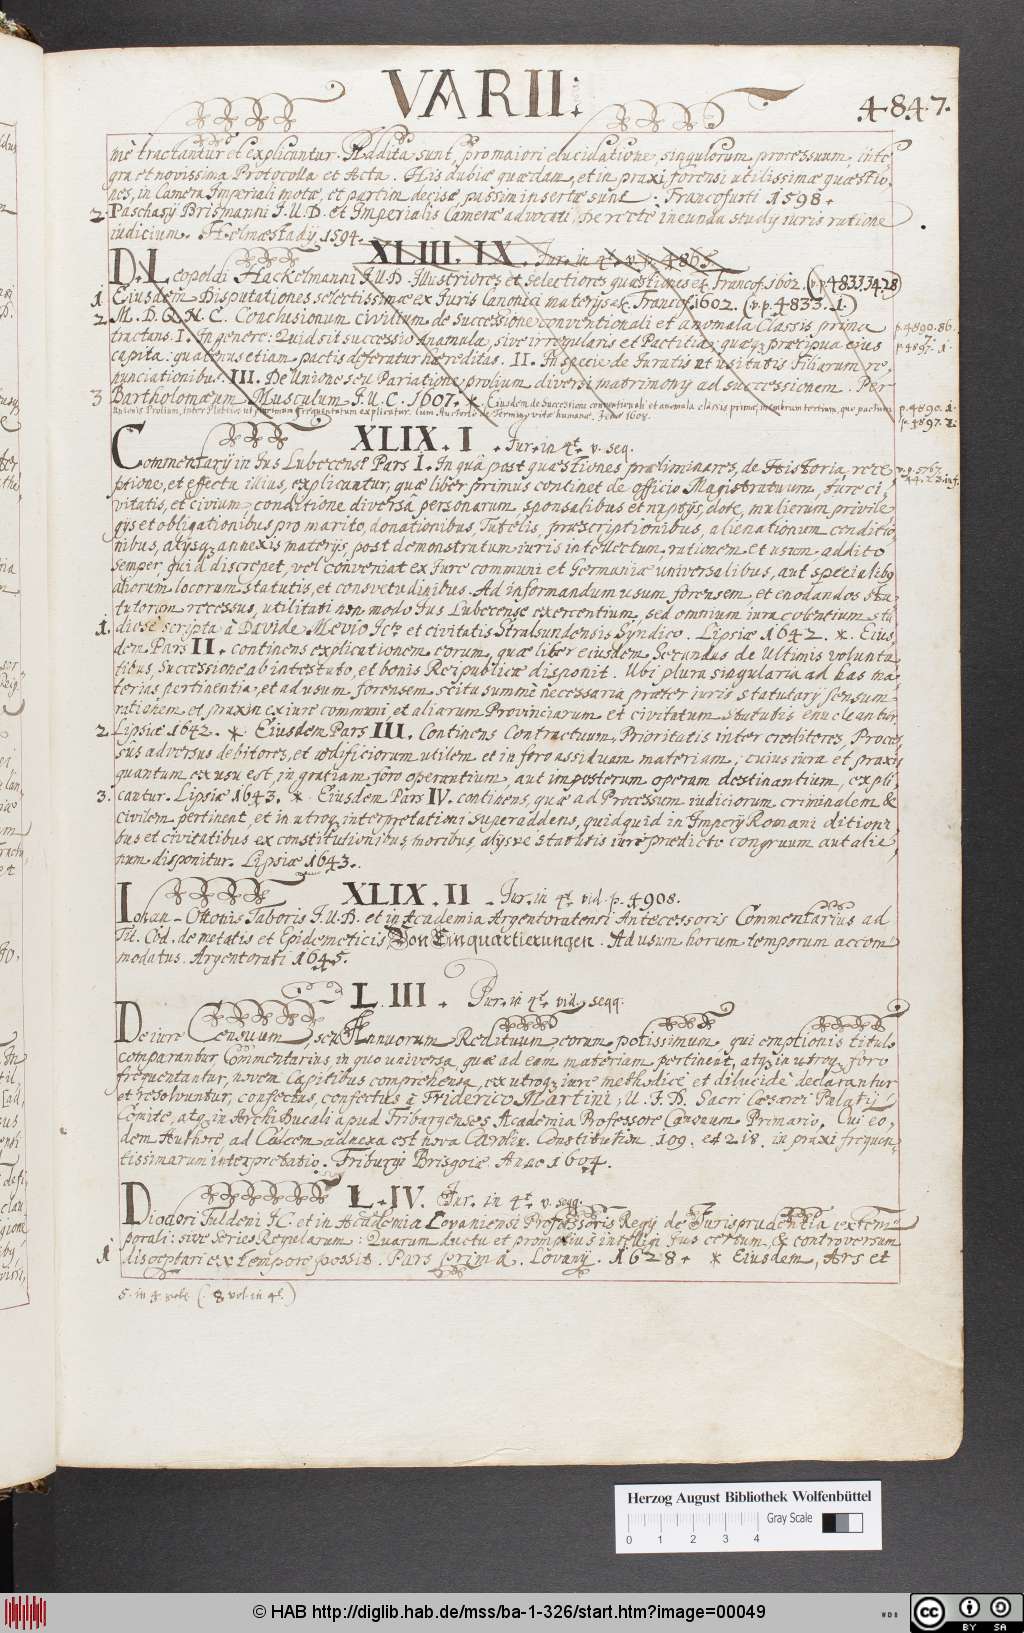 VARII:
.4847.
mè tractantur et explicantur. Addita sunt, pro maiori elucidatione, singulorum processuum, inte
gra et novissima Protocolla et Acta. His dubiæ quædam, et in praxi forensi utilissimæ quæstio,
nes, in Camera Imperiali motæ, et partim decisæ, passim insertæ sunt. Francofurti 1598.
2. Paschasij Brismanni J.U.D. et Imperialis Cameræ advocati, De recte ineunda studij iuris ratione
iudicium. Helmæstadij 1594.
XLIII. IX. Jur. in 4t. v. p. 4865
D. Leopoldi Hackelmanni J.U.D. Illustriores et selectiores quæstiones etc. Francof. 1602. (v.p. 4833.34.28)
1 Eiusdem Disputationes selectissimæ ex Juris Canonici materijs etc. Francof. 1602. (v.p. 4833.1.)
2 M. D. Q. N. C. Conclusionum civilium de successione conventionali et anomala Classis prima
p. 4890.86.
tractans. I. In genere: Quid sit successio Anamala, sive irregularis et Pactitia: quæq; præcipua eius
p. 4897. 1.
capita: quatenus etiam pactis deferatur hæreditas. II. In specie de Juratis ut usitatis Filiarum re,
nunciationibus. III. De Unione seu Pariatione prolium diversi matrimony ad successionem. Per
3 Bartholomæum Musculum J.U.C. 1607. * Eiusdem de Successione conventionali et anomala classis primæ, membrum tertium, quo pactum
p. 4890.1.
unionis Prolium, inter explicatur. Cum Auctario de Termino vitæ humanæ. Jenæ 1608.
p. 4897. 2.
XLIX. I. Jur. in 4t. v. seq.
Commentarij in Jus Lubecense Pars I. In quâ post quæstiones præliminares, de Historia, rece
v. p. 5767.
ptione, et effectu illius, explicantur, quæ liber primus continet de officio Magistratuum, Jure ci,
44.23.inf.
vitatis, et civium, conditione diversâ personarum, sponsalibus et nuptijs, dote, mulierum privile
gijs et obligationibus pro marito, donationibus, Tutelis, præscriptionibus, alienationum conditio,
nibus, alijsq; annexis materijs, post demonstratum iuris intellectum, rationem et usum addito
semper quid discrepet, vel conveniat ex Jure communi et Germaniæ universalibus, aut specialibq
aliorum locorum statutis, et consvetudinibus. Ad informandum usum forensem, et enodandos sta
tutorum recessus, utilitati non modo Jus Lubecense exercentium, sed omnium iura colentium stu
1. diosè scripta à Davide Mevio Jcto et civitatis Stralsundensis Syndico. Lipsiæ 1642. * Eius
dem Pars II. continens explicationem eorum, quæ liber eiusdem Secundus de Ultimis volunta
tibus, Successione ab intestato, et bonis Reipublicæ disponit. Ubi plura singularia ad has ma
terias pertinentia, et ad usum forensem scitu summè necessaria, præter iuris statutarij sensum
rationem et praxin ex iure communi, et aliarum Provinciarum et civitatum statutis enucleantur
2. Lipsiæ 1642. * Eiusdem Pars III. Continens Contractuum, Prioritatis inter creditores, Proces,
sus adversus debitores, et ædificiorum utilem et in foro assiduam materiam, cuius iura et praxis
quantum ex usu est, in gratiam foro operantium, aut imposterum operam destinantium, expli,
3. cantur. Lipsiæ 1643. * Eiusdem Pars IV. continens, quæ ad Processum iudiciorum criminalem &
civilem pertinent, et in utroq; interpretationi superaddens, quidquid in Imperij Romani dition
bus et civitatibus ex constitutionibus, moribus, alijsve statutis iure prædicto congruum aut alie
num disponitur. Lipsiæ 1643.
XLIX. II. Jur. in 4t. vid. p. 4908.
Iohan-Ottonis Taboris J.U.D. et in Academia Argentoratensi Antecessoris Commentarius ad
Tit. Cod. de metatis et Epidemeticis Von Einquartierungen. Ad usum horum temporum accom
modatus. Argentorati 1645.
L. III. Jur. in 4t. vid. seqq.
De iure Censuum, seu Annuorum Redituum, eorum potissimum, qui emptionis titulo
comparantur Commentarius, in quo universa, quæ ad eam materiam pertinent, atq; in utroq; foro
frequentantur, novem Capitibus comprehensa, ex utroq; iure methodice et dilucidè declarantur
et resolvuntur, confectus, confectus à Friderico Martini, U.J.D. Sacri Cæsarei Palatij
Comite, atq; in ArchiDucali apud Friburgenses Academia Professore Canonum Primario. Cui eo,
dem Authore ad Calcem adnexa est nova Carolin. Constitution. 109. et 218. in praxi frequen,
tissimarum interpretatio. Friburgi Brisgoiæ Anno 1604.
L. IV. Jur. in 4t. v. seqq.
Diodori Tuldeni JC. et in Academia Lovaniensi Professoris Regij de Jurisprudentia extem
porali: sive Series Regularum: Quarum ductu et promptius intelligi Jus certum, & controversum
1 disceptari ex tempore possit. Pars prima. Lovanij. 1628. * Eiusdem, Ars et
5. in 4 volt. (: 8 vol. in 4t.)
Herzog August Bibliothek Wolfenbüttel
0 1 2 3 4
Gray Scale
© HAB http://diglib.hab.de/mss/ba-1-326/start.htm?image=00049
WDB
cc BY SA